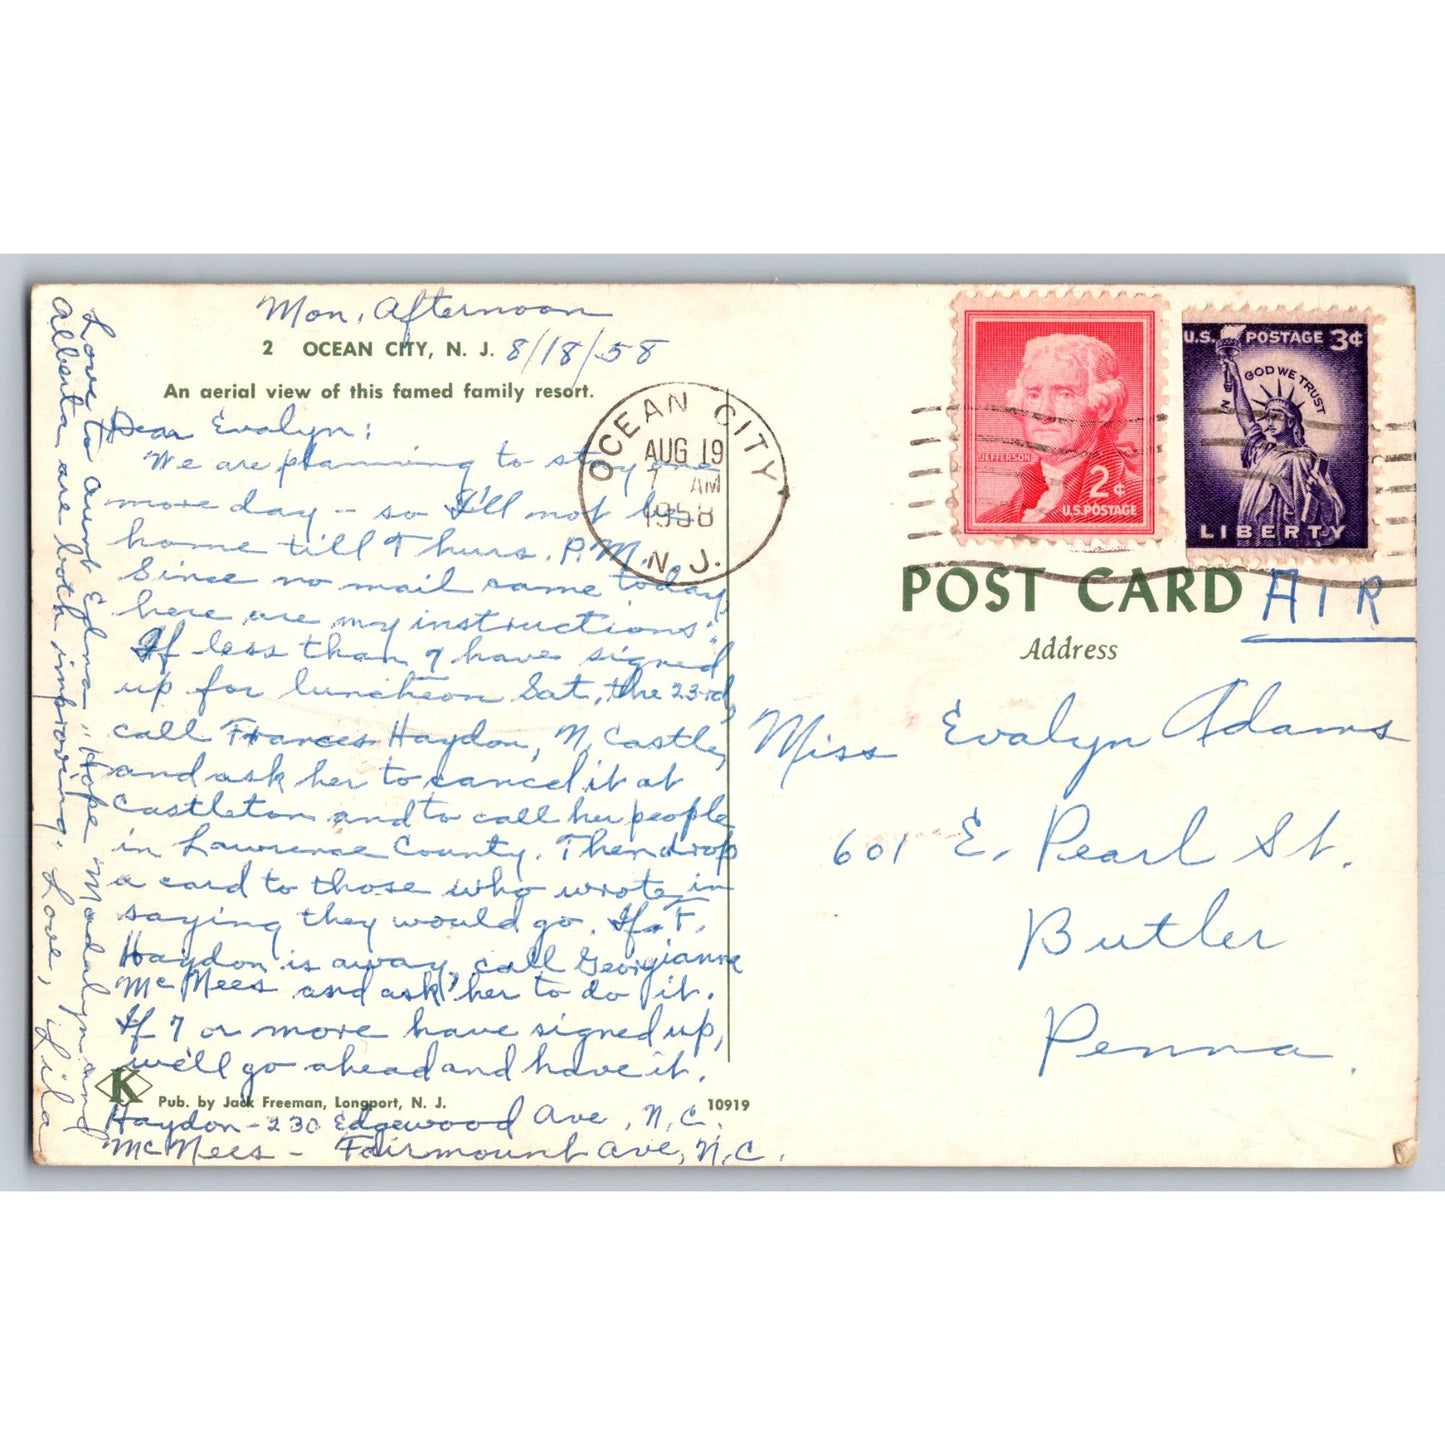 Mon. Afternoon
2 OCEAN CITY, N. J. 8/18/58
An aerial view of this famed family resort.
Dear Evalyn:
We are planning to stay one
more day - so I'll not be
home till Thurs. P.M.
Since no mail came today,
here are my instructions:
If less than 7 have signed
up for luncheon Sat., the 23rd,
call Frances Haydon, N. Castle,
and ask her to cancel it at
Castleton and to call her people
in Lawrence County. Then drop
a card to those who wrote in
saying they would go. If F.
Haydon is away, call Georgianna
McNees and ask her to do it.
If 7 or more have signed up,
we'll go ahead and have it.
K Pub. by Jack Freeman, Longport, N. J. 10919
Haydon - 230 Edgewood Ave, N.C.
McNees - Fairmount Ave, N.C.
Love to Aunt Edna. Hope Madalyn and
Alberta are both improving. Love, Lila
OCEAN CITY
AUG 19
7 AM
1958
N. J.
JEFFERSON
2¢
U.S. POSTAGE
U.S. POSTAGE 3¢
IN GOD WE TRUST
LIBERTY
POST CARD AIR
Address
Miss Evalyn Adams
601 E. Pearl St.
Butler
Penna.